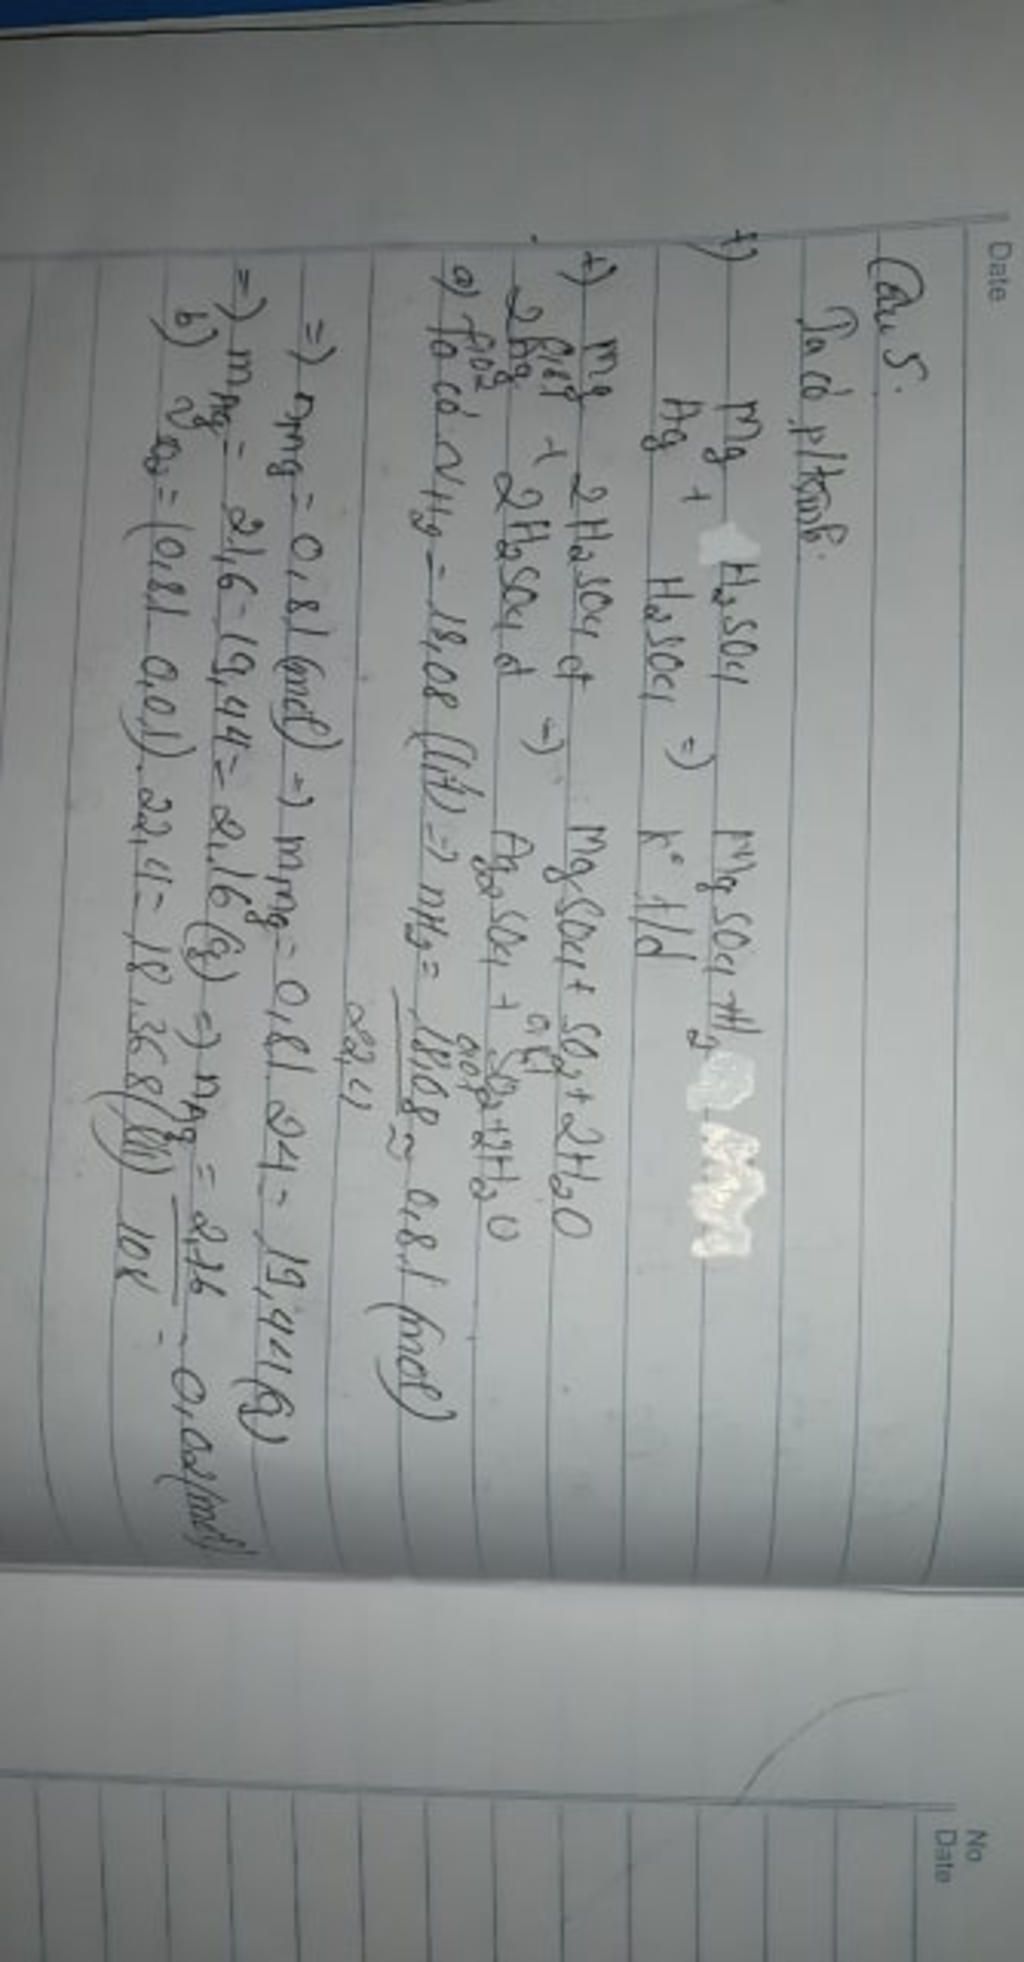 Date
Câu 5.
Ta có p/trình:
+) Mg + H2SO4 MgSO4 + H2
Ag + H2SO4 => k° t/d
+) Mg + 2H2SO4 đ -> MgSO4 + SO2 + 2H2O
0,81 0,81
2Ag + 2H2SO4 đ Ag2SO4 + SO2 + 2H2O
0,02 0,01
a) Ta có VH2 = 18,08 (lít) -> nH2 = 18,08 ≈ 0,81 (mol)
22,4
=> nMg = 0,81 (mol) => mMg = 0,81.24 = 19,44 (g)
=> mAg = 21,6 - 19,44 = 2,16 (g) => nAg = 2,16 = 0,02 (mol)
108
b) = (0,81 0,01).22,4 = 18,368 (lít)
No
Date